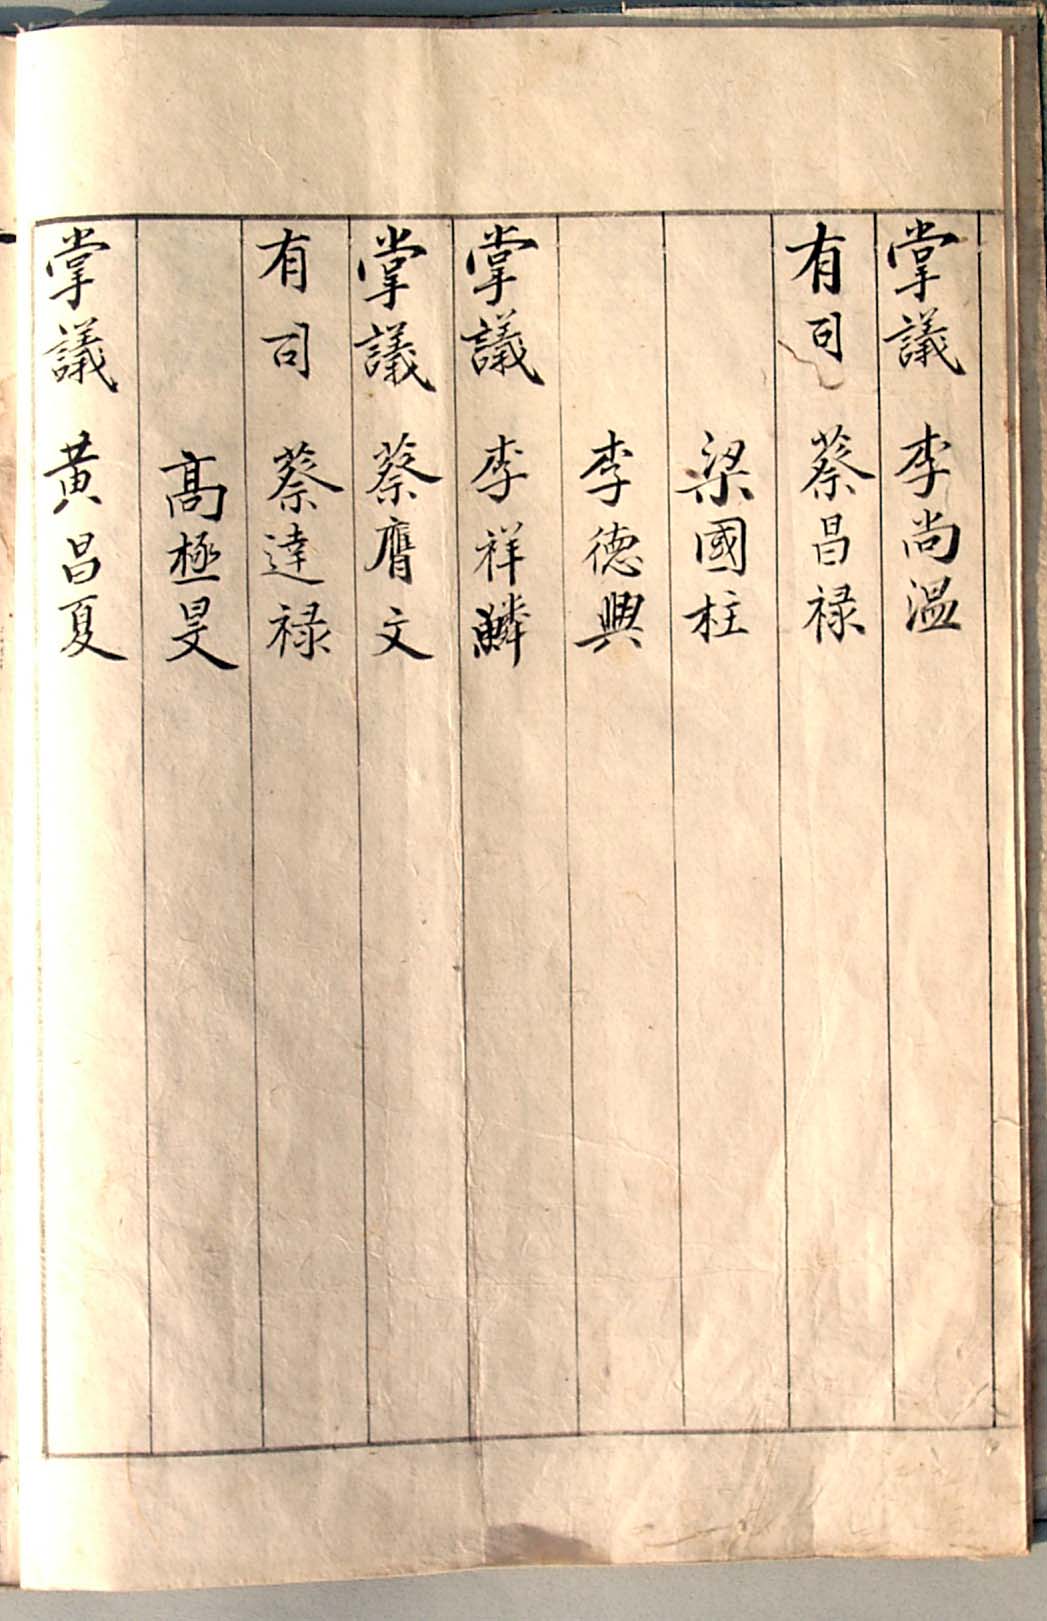 掌議 李尚溫
有司 蔡昌祿
梁國柱
李德興
掌議 李祥麟
掌議 蔡膺文
有司 蔡達祿
高極旻
掌議 黃昌夏